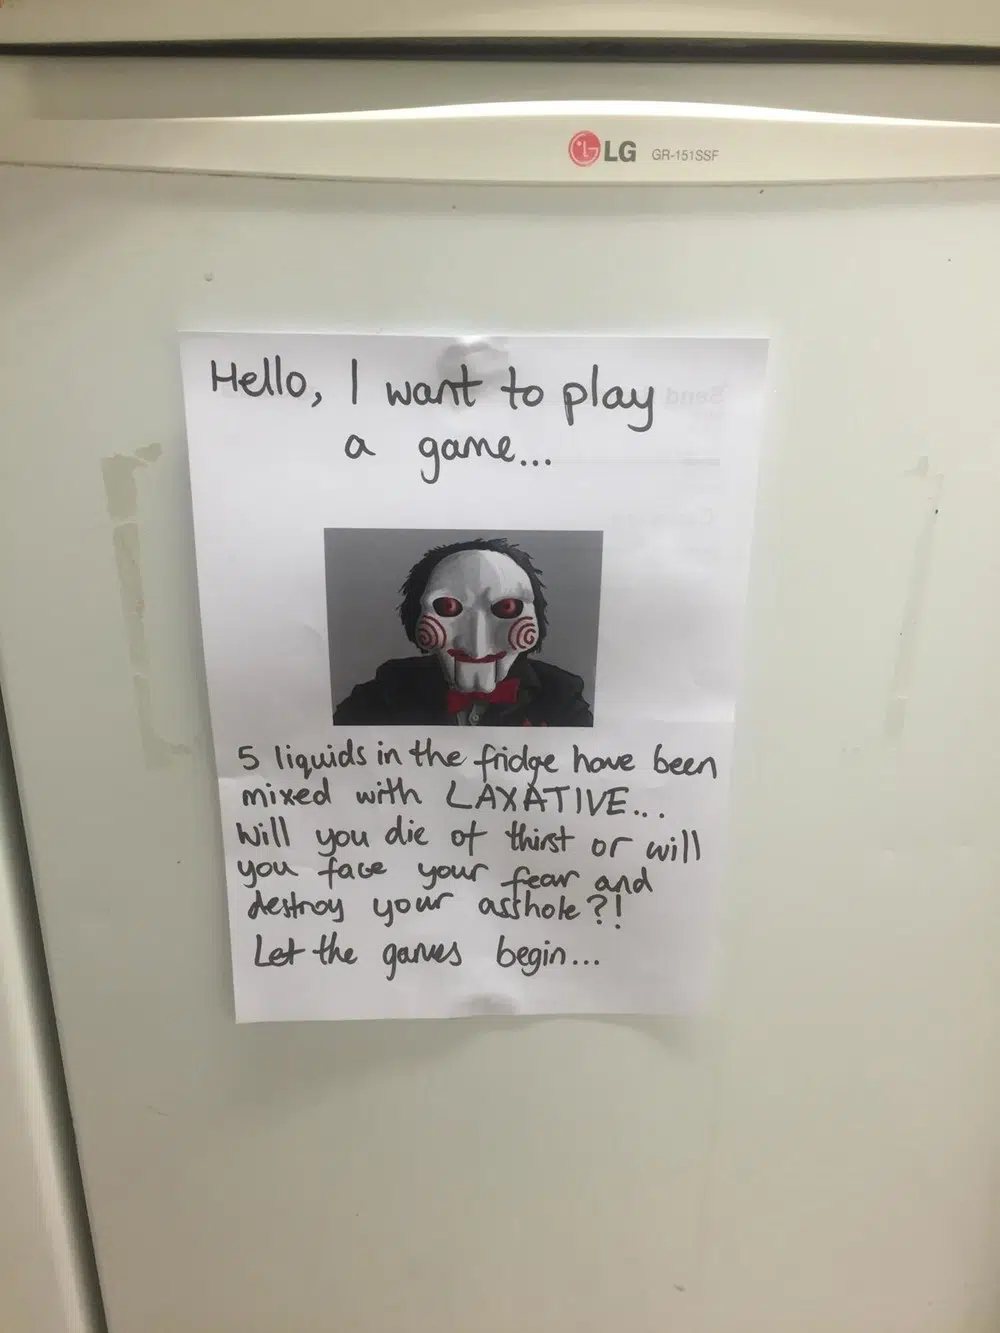 LG GR-151SSF
Hello, I want to play
a game...
5 liquids in the fridge have been
mixed with LAXATIVE...
Will you die of thirst or will
you face your fear and
destroy your asshole?!
Let the games begin...